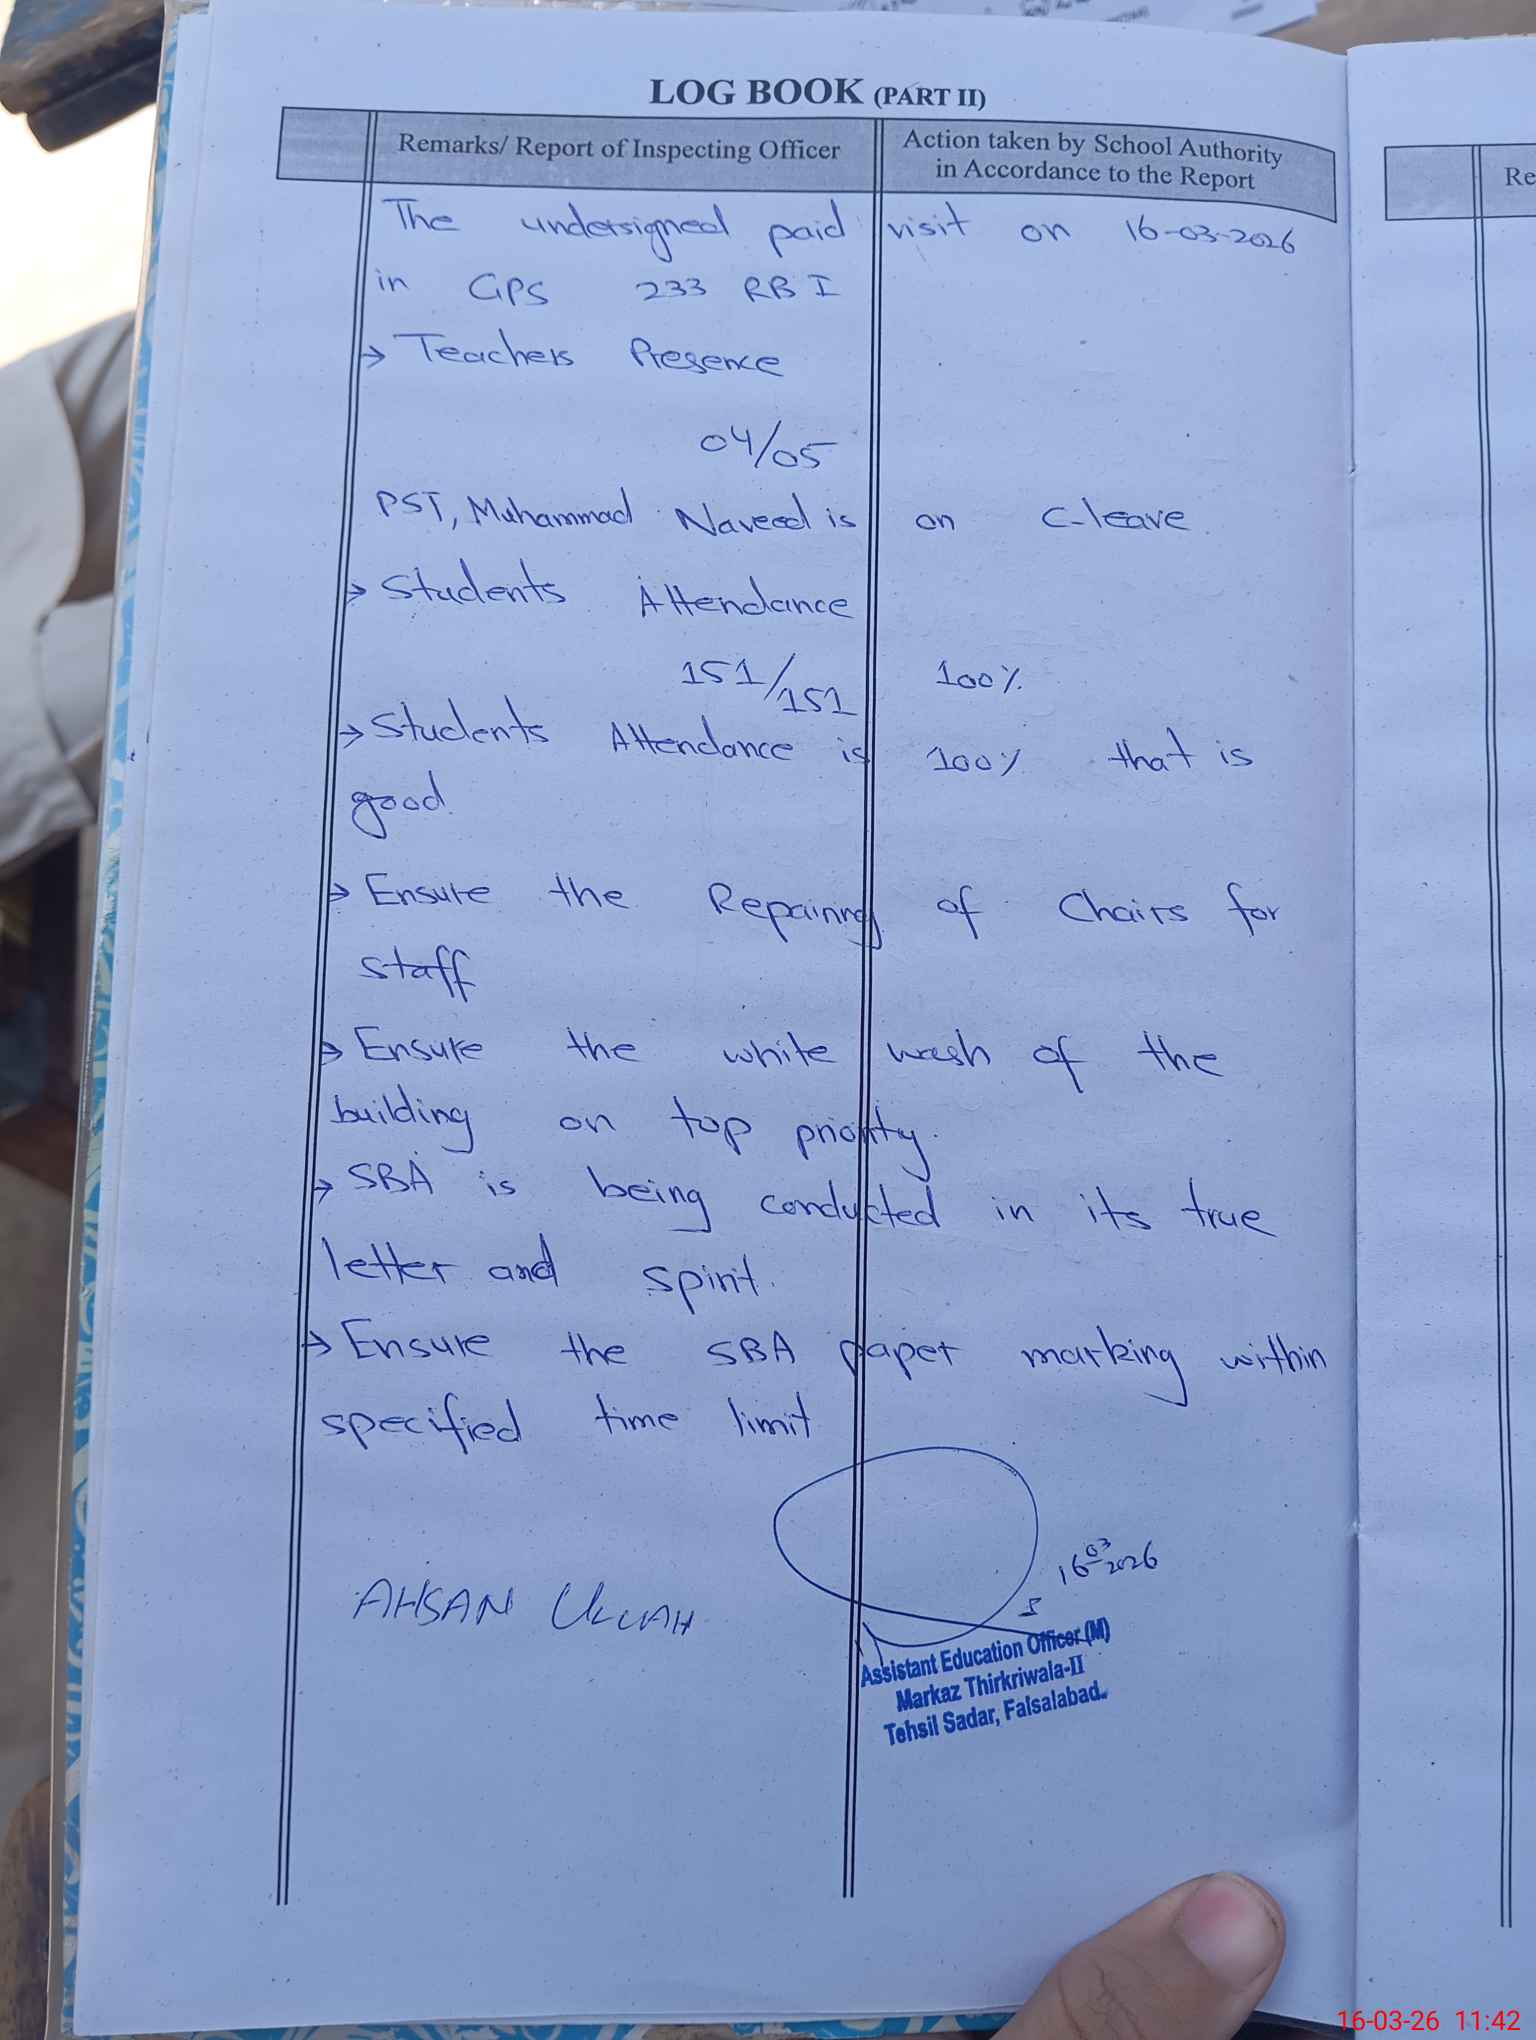 LOG BOOK (PART II)
Remarks/ Report of Inspecting Officer
Action taken by School Authority
in Accordance to the Report
Re
The undersigned paid visit on 16-03-2026
in GPS 233 RB I
→ Teachers Presence
04/05
PST, Muhammad Naveed is on C-leave
→ Students Attendance
151/151 100%
→ Students Attendance is 100% that is
good.
→ Ensure the Repairing of Chairs for
staff
→ Ensure the white wash of the
building on top priority.
→ SBA is being conducted in its true
letter and spirit.
→ Ensure the SBA paper marking within
specified time limit
16-03-2026
AHSAN ULLAH
Assistant Education Officer (M)
Markaz Thirkriwala-II
Tehsil Sadar, Faisalabad.
16-03-26 11:42